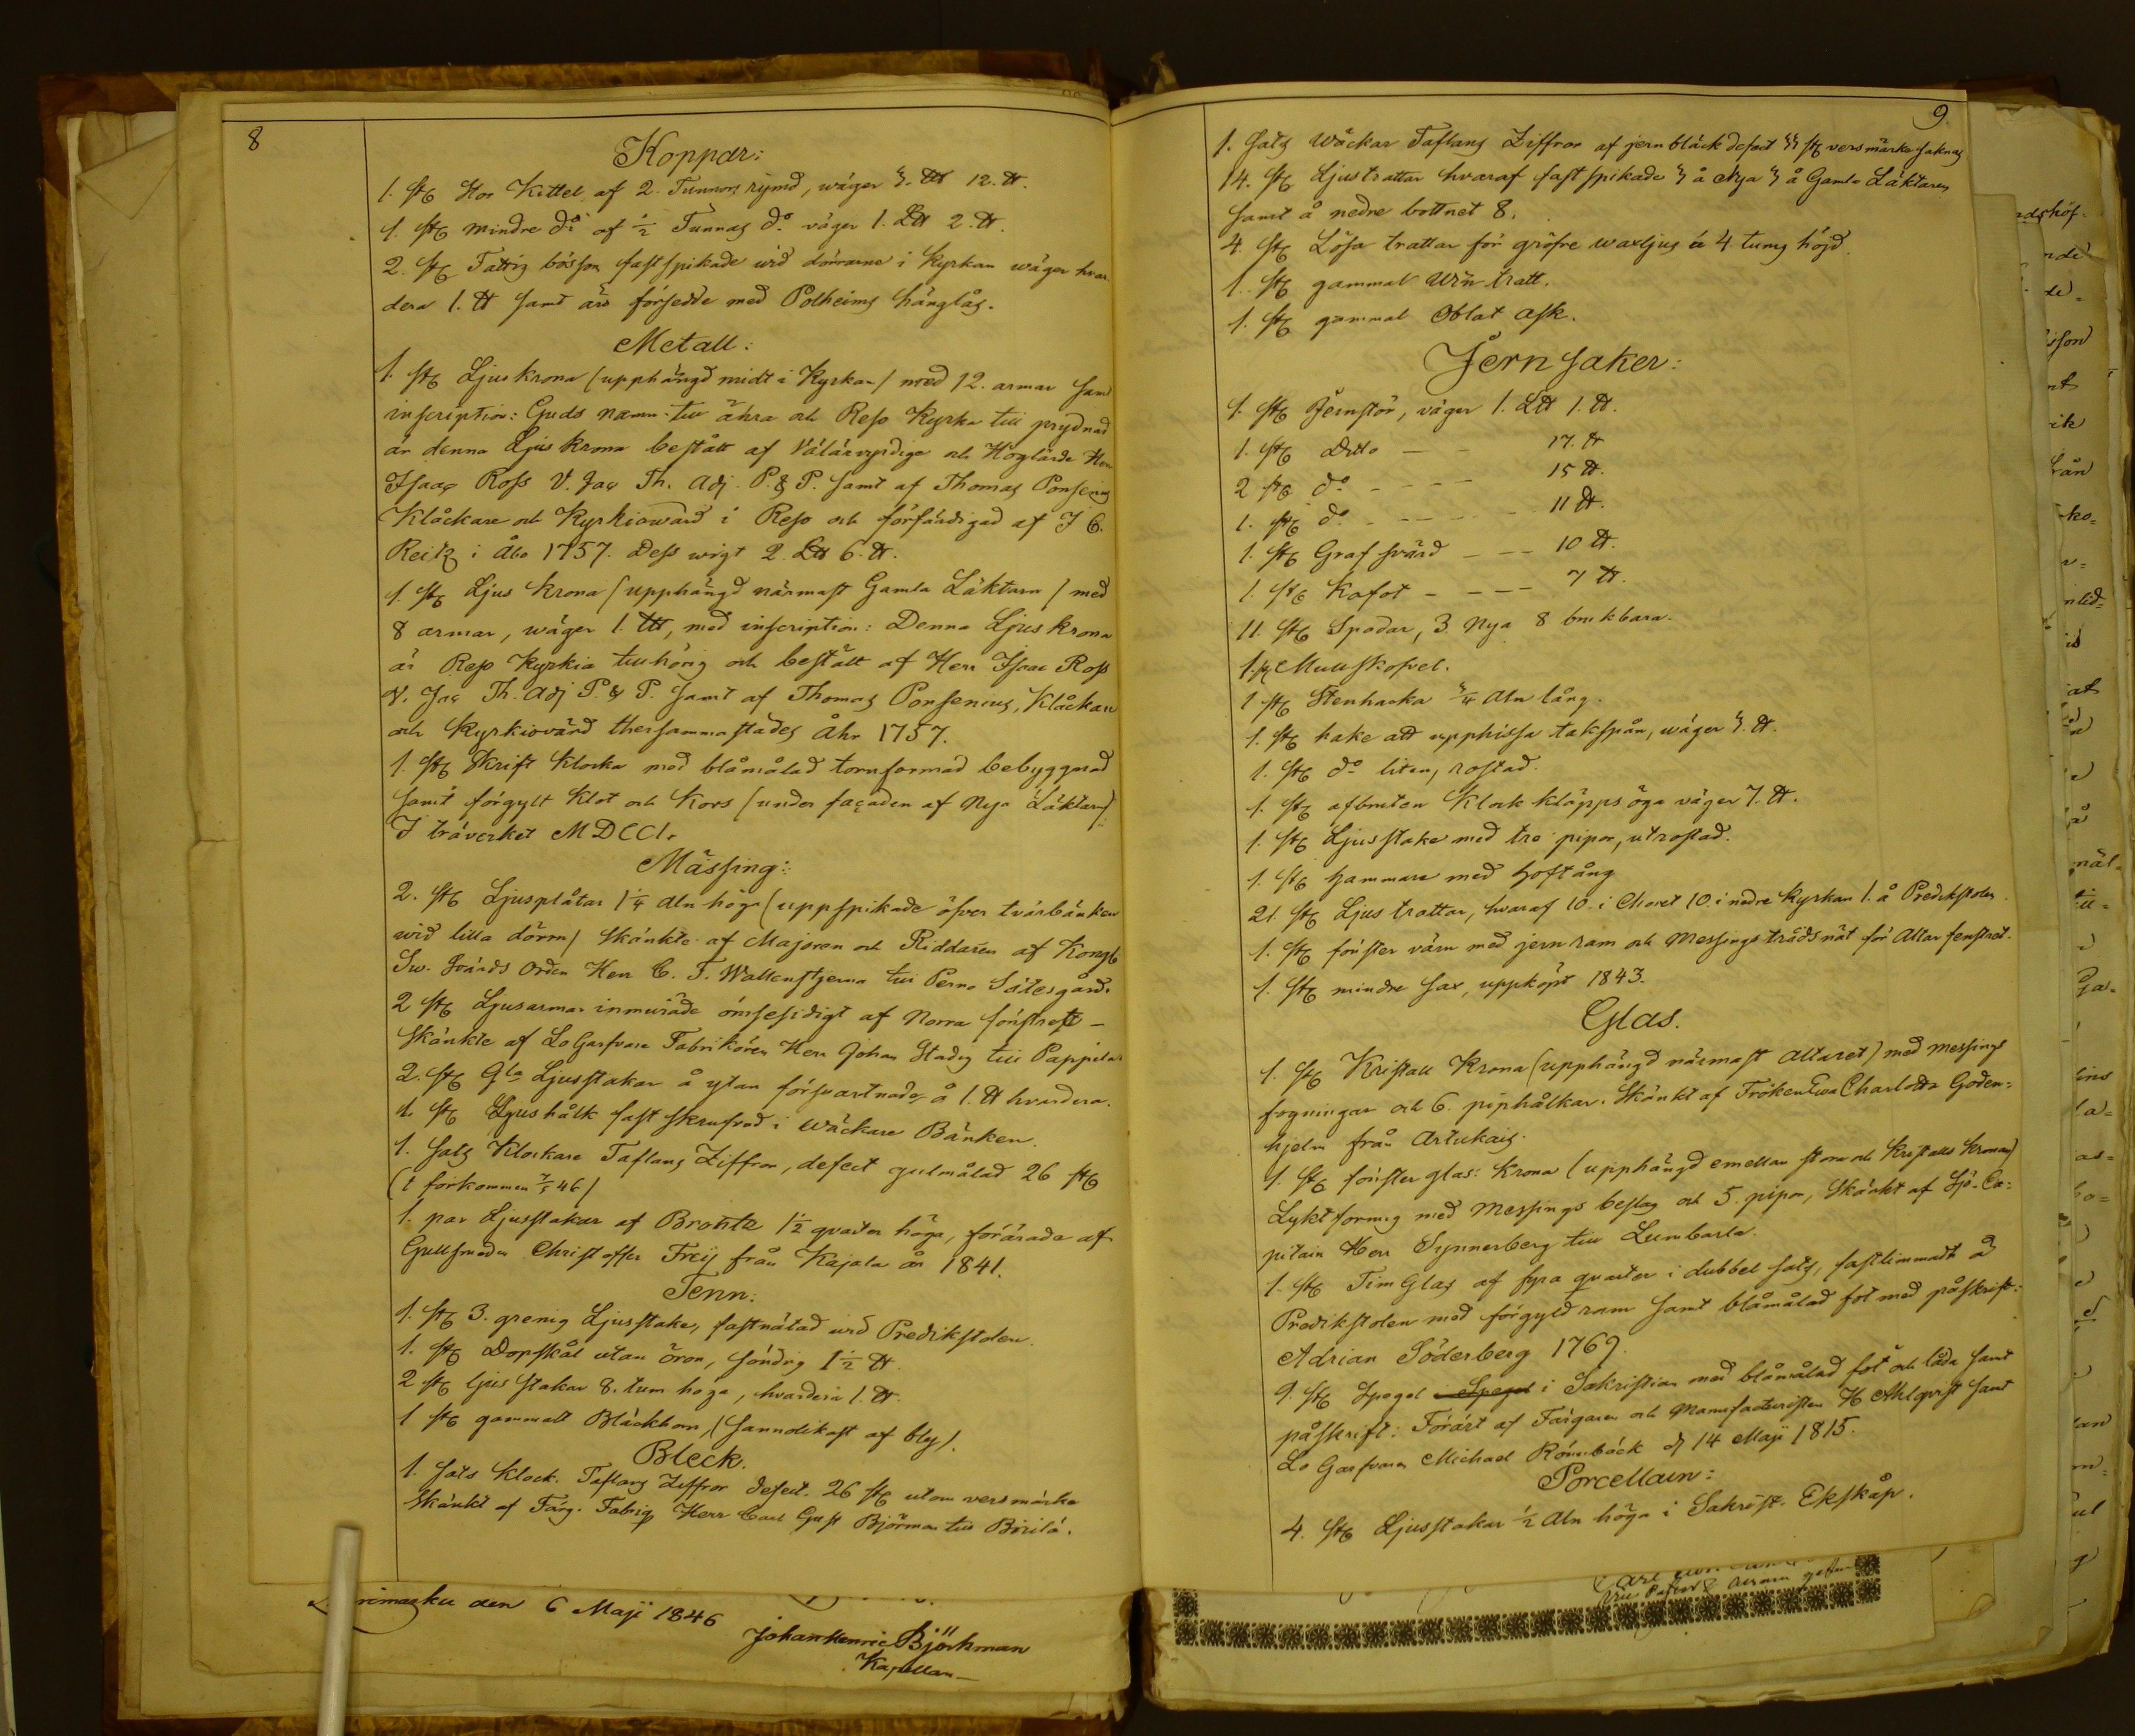 8
Koppar:
1. st. Stor Kittel af 2. Tunnors rymd, wäger 3. L℔ 12. ℔.
1. st. mindre do af ½ Tunnas do väger 1. L℔ 2. ℔.
2. st. Fattig bössor fastspikade wid dörrarne i Kyrkan wäger hvar
dera 1. ℔ samt äro försedde med Polheims hänglås.
Metall:
1. st. Ljuskrona (upphängd midt i Kyrkan) med 12. armar samt
inscription: Guds namn till ähra och Reso Kyrka till prydnad
är denna Ljus krona bestått af Välärevyrdige och Höglärde Herr
Isaac Ross V. Jac Th. Adj. P. & P. samt af Thomas Ponsenius
Klåckare och Kyrkioward i Reso och förfärdigad af J C.
Reitz i Åbo 1757. Dess wigt 2. L℔ 6. ℔.
1. st. Ljus Krona (upphängd närmast Gamla Läktarn) med
8 armar, wäger 1. L℔, med inscription: Denna Ljus krona
är Reso Kyrkia tillhörig och bestått af Herr Isaac Ross
V. Jac Th. Adj P. & P. samt af Thomas Ponsenius, Klåckare
och Kyrkiovärd thersammastädes Åhr 1757.
1. st. Skrift Klocka med blåmålad tornformad bebyggnad
samt förgylt Klot och Kors (under façaden af Nya Läktarn)
I träverket MDCCL.
Mässing:
2. st. Ljusplåtar 1¼ Aln höga (uppspikade öfver tvärbänken
wid lilla dörrn) Skänkte af Majoren och Riddaren af Kongl.
Sw. Svärds Orden Herr C. F. Wallenstjerna till Perno Sätesgård.
2 st. Ljusarmar inmurade ömsesidigt af Norra fönstret –
Skänkte af Lo Garfvare Fabrikören Herr Johan Stadig till Pappila
2. st. Gla Ljusstakar å ytan försvartnade å 1. ℔ hvardera.
1. st. Ljushålk fast skrufvad i Wäckare Bänken.
1. Sats Klockare Taflans Ziffror, defect gulmålad 26 st.
(1 förkommen 7/5 46)
1. par Ljusstakar af Brontz 1½ qvarter höga, förärade af
Gullsmeden Christoffer Freij från Kajala år 1841.
Tenn:
1. st. 3. grenig Ljusstake, fastnålad wid Predikstolen.
1. st. Dopskål utan öron, söndrig 1½ ℔
2 st. ljus stakar 8. tum höga, hvardera 1. ℔.
1 st. gammalt Bläckhorn, (sannolikast af bly).
Bleck.
1. Sats Klock. Taflans Ziffror defect. 26 st. utom versmärke
Skänkt af Färg. Fabriq Herr Carl Gust Björman till Böitlä.
den 6 Maji 1846
Johan Henric Björkman
Kapellan
9
1. Sats Wäckar Taflans Ziffror af jernbläck defect st. versmärke saknas
14. st. Ljustrattar hvaraf fastspikade 3 å Nya 3 å Gamla Läktaren
samt å nedre bottnet 8.
4. st. Lösa trattar för gröfre waxljus à 4. tums höjd.
1. st. gammal Win tratt.
1. st. gammal Oblat ask.
Jern saker:
1. st. Jernstör, väger 1. L℔ 1. ℔.
1. st. Ditto – – 17. ℔
2 st. do – – – – 15 ℔.
1. st. do – – – – – 11 ℔.
1. st. Graf svärd – – – 10 ℔.
1. st. Kofot – – – – 7 ℔.
11. st. Spadar, 3 Nya 8 brukbara.
1. st. Mullskofvel.
1 st. Stenhacka ¾ Aln lång.
1. st. hake att upphissa takspån, wäger 3. ℔.
1. st. do liten, rostad.
1. st. afbruten Klock kläpps öga väger 7. ℔.
1. st. Ljusstake med tre pipor, utrostad.
1. st. hammare med hoftång
21. st. Ljus trattar, hvaraf 10. i Choret 10. i nedre Kyrkan 1. å Predikstolen.
1. st. fönster värn med jern ram och Messings trådsnät för Altar fenstret.
1. st. mindre sax, uppköpt 1843.
Glas.
1. st. Kristall Krona (upphängd närmast Altaret) med messings
fogningar och 6. piphålkar. Skänkt af Fröken Ewa Charlotta Goden=
hjelm från Artukais.
1. st. fönster glas: Krona (upphängd emellan stora och Kristalls Kronan)
Lyktformig med Messings beslag och 5. pipor, Skänkt af Sjö-Ca=
pitain Herr Synnerberg till Lumbarla.
1. st. Timglas af fyra quarter i dubbel sats, fastlimmadt å
Predikstolen med förgyld ram samt blåmålad fot med påskrift:
Adrian Söderberg 1769.
1. st. Spegel i Sakristian med blåmålad fot och låda samt
påskrift: Förärt af Färgaren och Manufacturisten H Ahlqvist samt
Lo Garfvaren Michael Rönnbäck d 14 Maji 1815.
Porcellain:
4. st. Ljusstakar ½ Aln höga i Sakrist. Ekskåp.